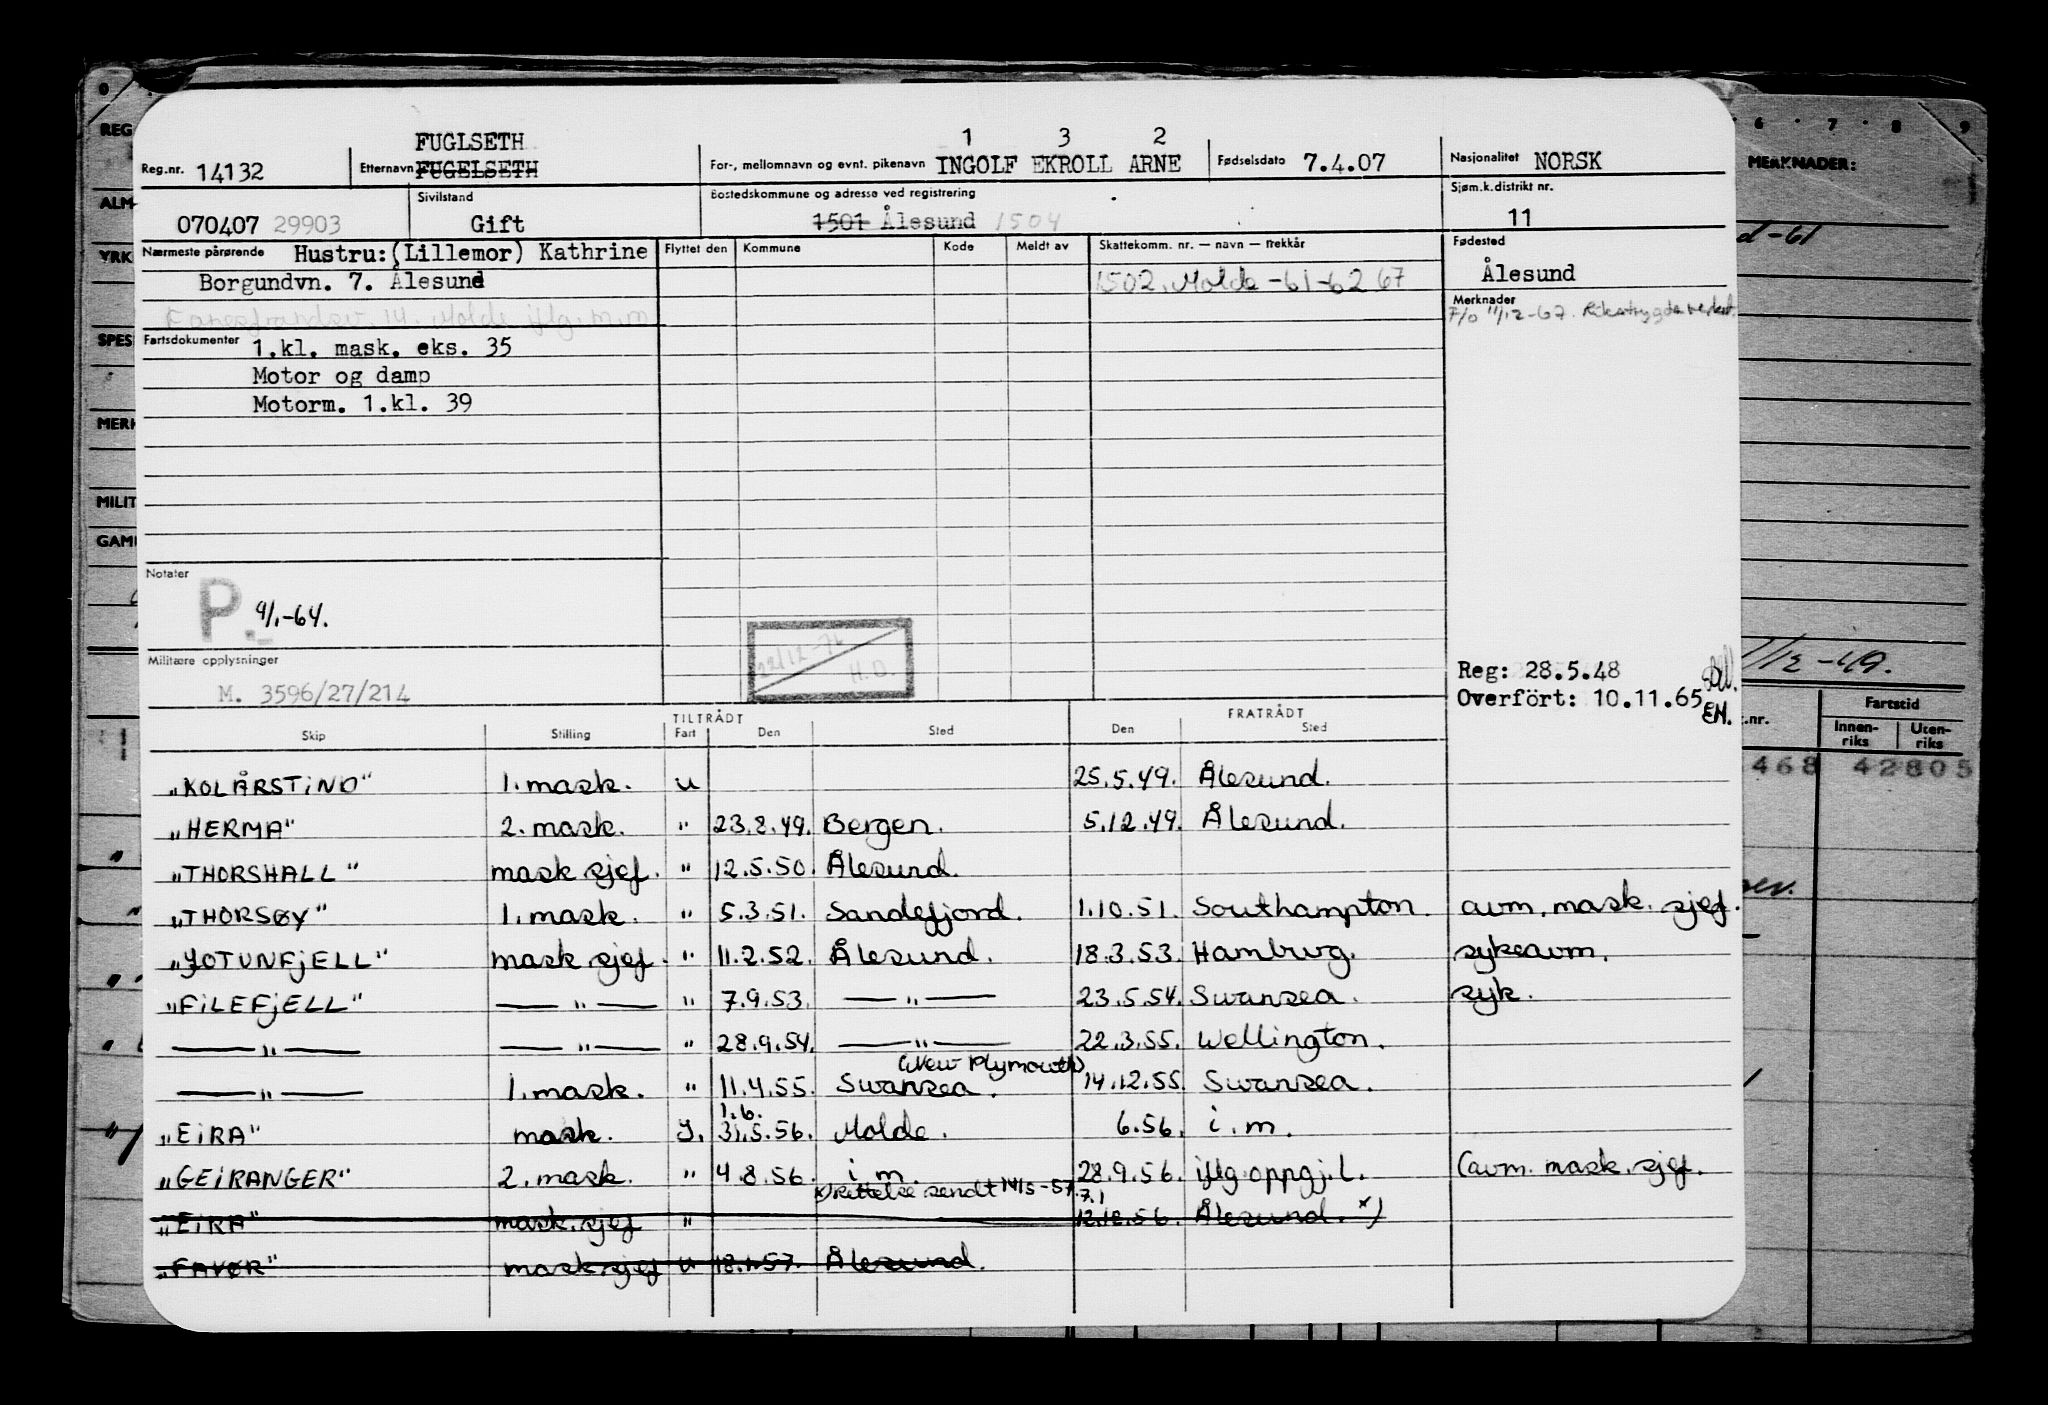 FUGLSETH 1 3 2
Reg.nr. 14132 Etternavn FUGELSETH For-, mellomnavn og evnt. pikenavn INGOLF EKROLL ARNE Fødselsdato 7.4.07 Nasjonalitet NORSK
Sivilstand Bostedskommune og adresse ved registrering Sjøm.k.distrikt nr.
070407 29903 Gift 1501 Ålesund 1504 11
Nærmeste pårørende Hustru:(Lillemor) Kathrine Flyttet den Kommune Kode Meldt av Skattekomm. nr. — navn — trekkår Fødested
Borgundvn. 7. Ålesund 1502. Molde -61-62 67 Ålesund
14. Molde iflg. m.m Merknader
F/O 11/12-67. Rikstrygdeverket.
Fartsdokumenter 1.kl. mask. eks. 35
Motor og damp
Motorm. 1.kl. 39
Notater
P.- 9/1-64.
22/12-76
H.O.
Militære opplysninger
M. 3596/27/214
Reg: 28.5.48
Overført: 10.11.65 EH.
TILTRÅDT FRATRÅDT
Skip Stilling Fart Den Sted Den Sted
"KOLÅRSTIND" 1. mask. u 25.5.49. Ålesund.
"HERMA" 2. mask. " 23.8.49. Bergen. 5.12.49. Ålesund.
"THORSHALL" mask sjef. " 12.5.50. Ålesund.
"THORSØY" 1. mask. " 5.3.51. Sandefjord. 1.10.51. Southampton. avm. mask. sjef.
"JOTUNFJELL" mask sjef. " 11.2.52. Ålesund. 18.3.53. Hamburg. sykeavm.
"FILEFJELL" — " — " 7.9.53. — " — 23.5.54. Swansea. syk.
— " — — " — " 28.9.54. — " — 22.3.55. Wellington.
(New Plymouth)
— " — 1. mask. " 11.4.55. Swansea. 14.12.55. Swansea.
1.6.
"EIRA" mask. J. 31.5.56. Molde. 6.56. i.m.
"GEIRANGER" 2. mask. " 4.8.56. i m. 28.9.56. iflg. oppgj.l. (avm. mask. sjef.
x) rettelse sendt 14/5-57. 7.1
"EIRA" mask. sjef " 12.12.56. Ålesund. x)
"FAVØR" mask. sjef u 18.1.57. Ålesund.
REG
ALM
YRK
SPES
MERK
MILIT
GAM
6 7 8 9
MERKNADER:
-61
/12-49.
.nr. Fartstid
Innen-riks Uten-riks
468 42805